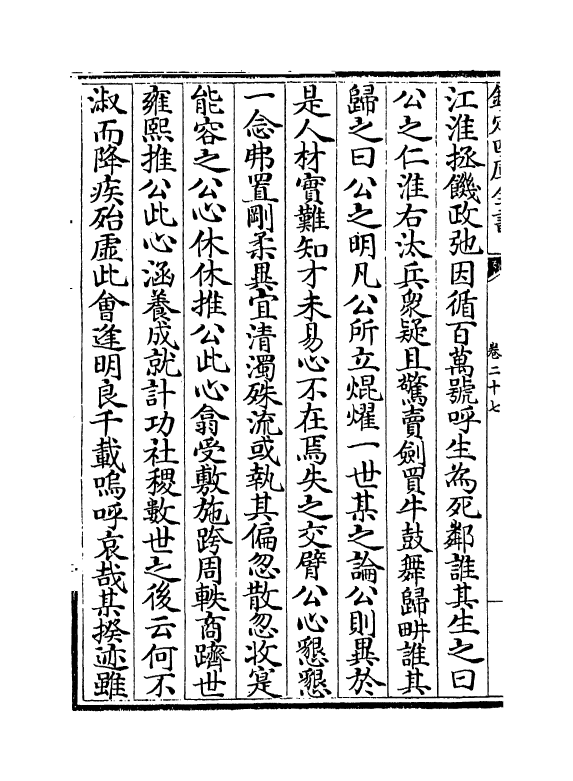 欽定四庫全書
卷二十七
江淮拯饑政弛因循百萬號呼生為死鄰誰其生之曰
公之仁淮右汰兵衆疑且驚賣劍買牛鼓舞歸畊誰其
歸之曰公之明凡公所立焜燿一世某之論公則異於
是人材實難知才未易心不在焉失之交臂公心懇懇
一念弗置剛柔異宜清濁殊流或執其偏忽散忽收寔
能容之公心休休推公此心翕受敷施跨周軼商躋世
雍熙推公此心涵養成就計功社稷數世之後云何不
淑而降疾殆虛此㑹逢明良千載嗚呼哀哉某揆迹雖